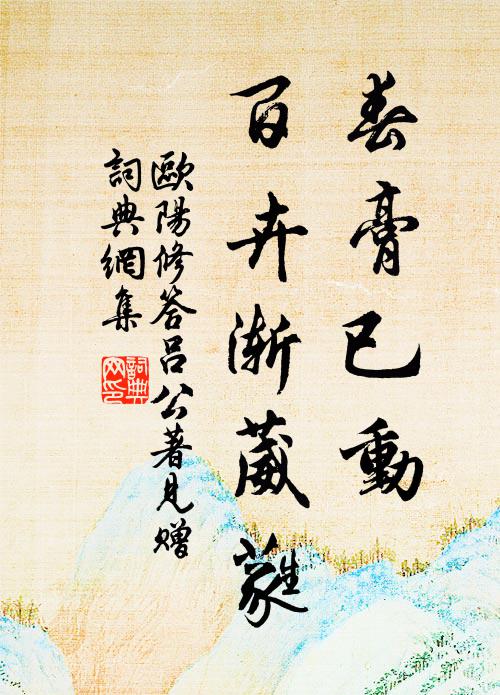 春膏已動
百卉漸葳蕤
歐陽修答呂公著見贈
詞典網集
詞典网印